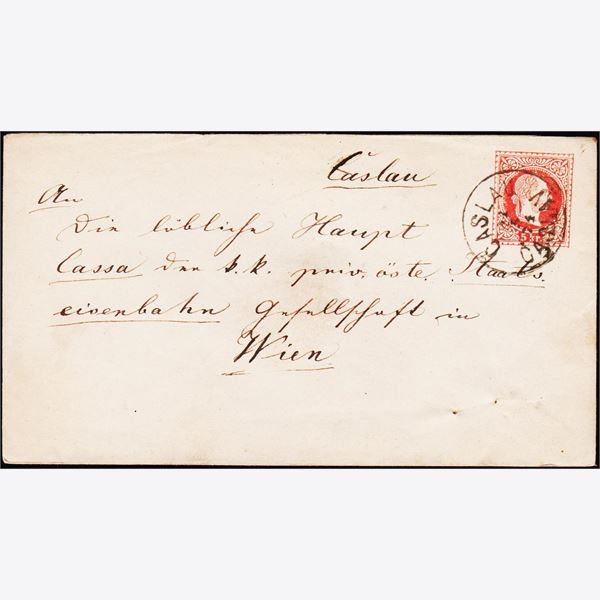 Časlau
An
Die löbliche Haupt
Cassa der k. k. priv. öste. Staats
eisenbahn Gesellschaft in
Wien
CASLAU
5